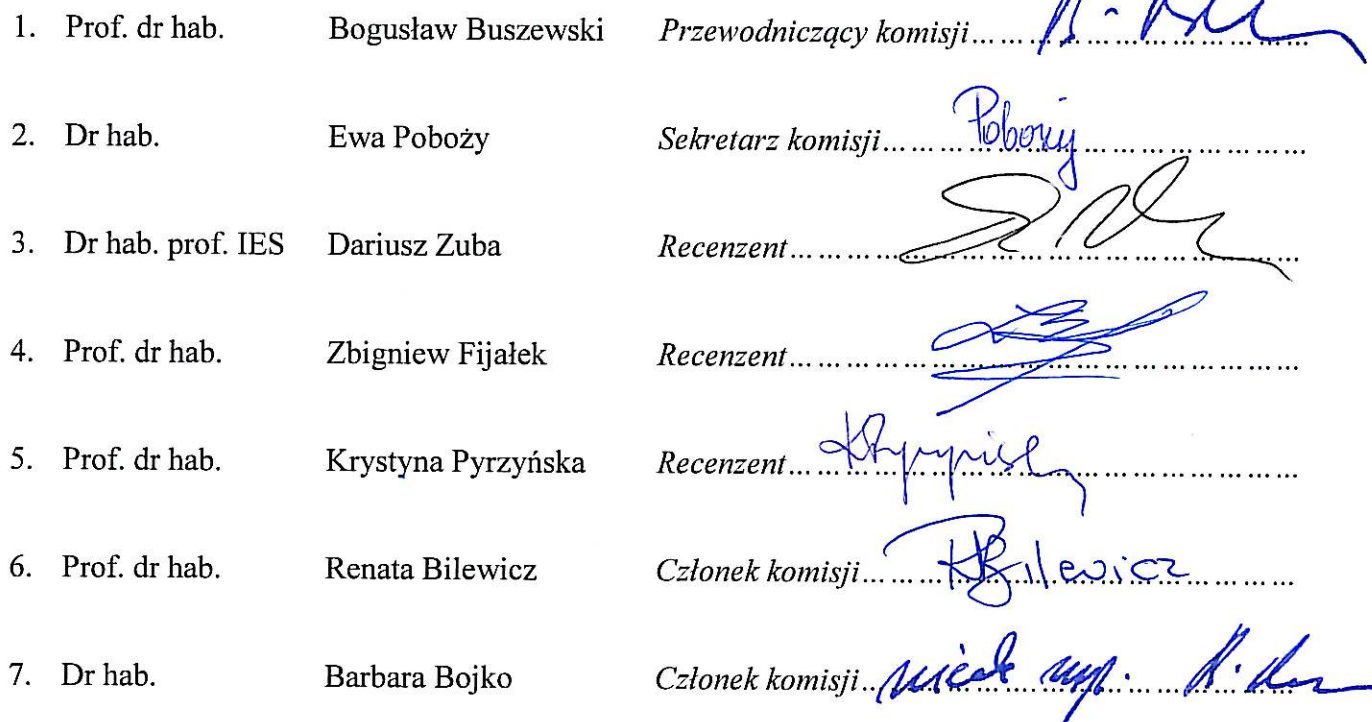 1. Prof. dr hab. Bogusław Buszewski Przewodniczący komisji
2. Dr hab. Ewa Poboży Sekretarz komisji Poboży
3. Dr hab. prof. IES Dariusz Zuba Recenzent
4. Prof. dr hab. Zbigniew Fijałek Recenzent
5. Prof. dr hab. Krystyna Pyrzyńska Recenzent
6. Prof. dr hab. Renata Bilewicz Członek komisji RBilewicz
7. Dr hab. Barbara Bojko Członek komisji